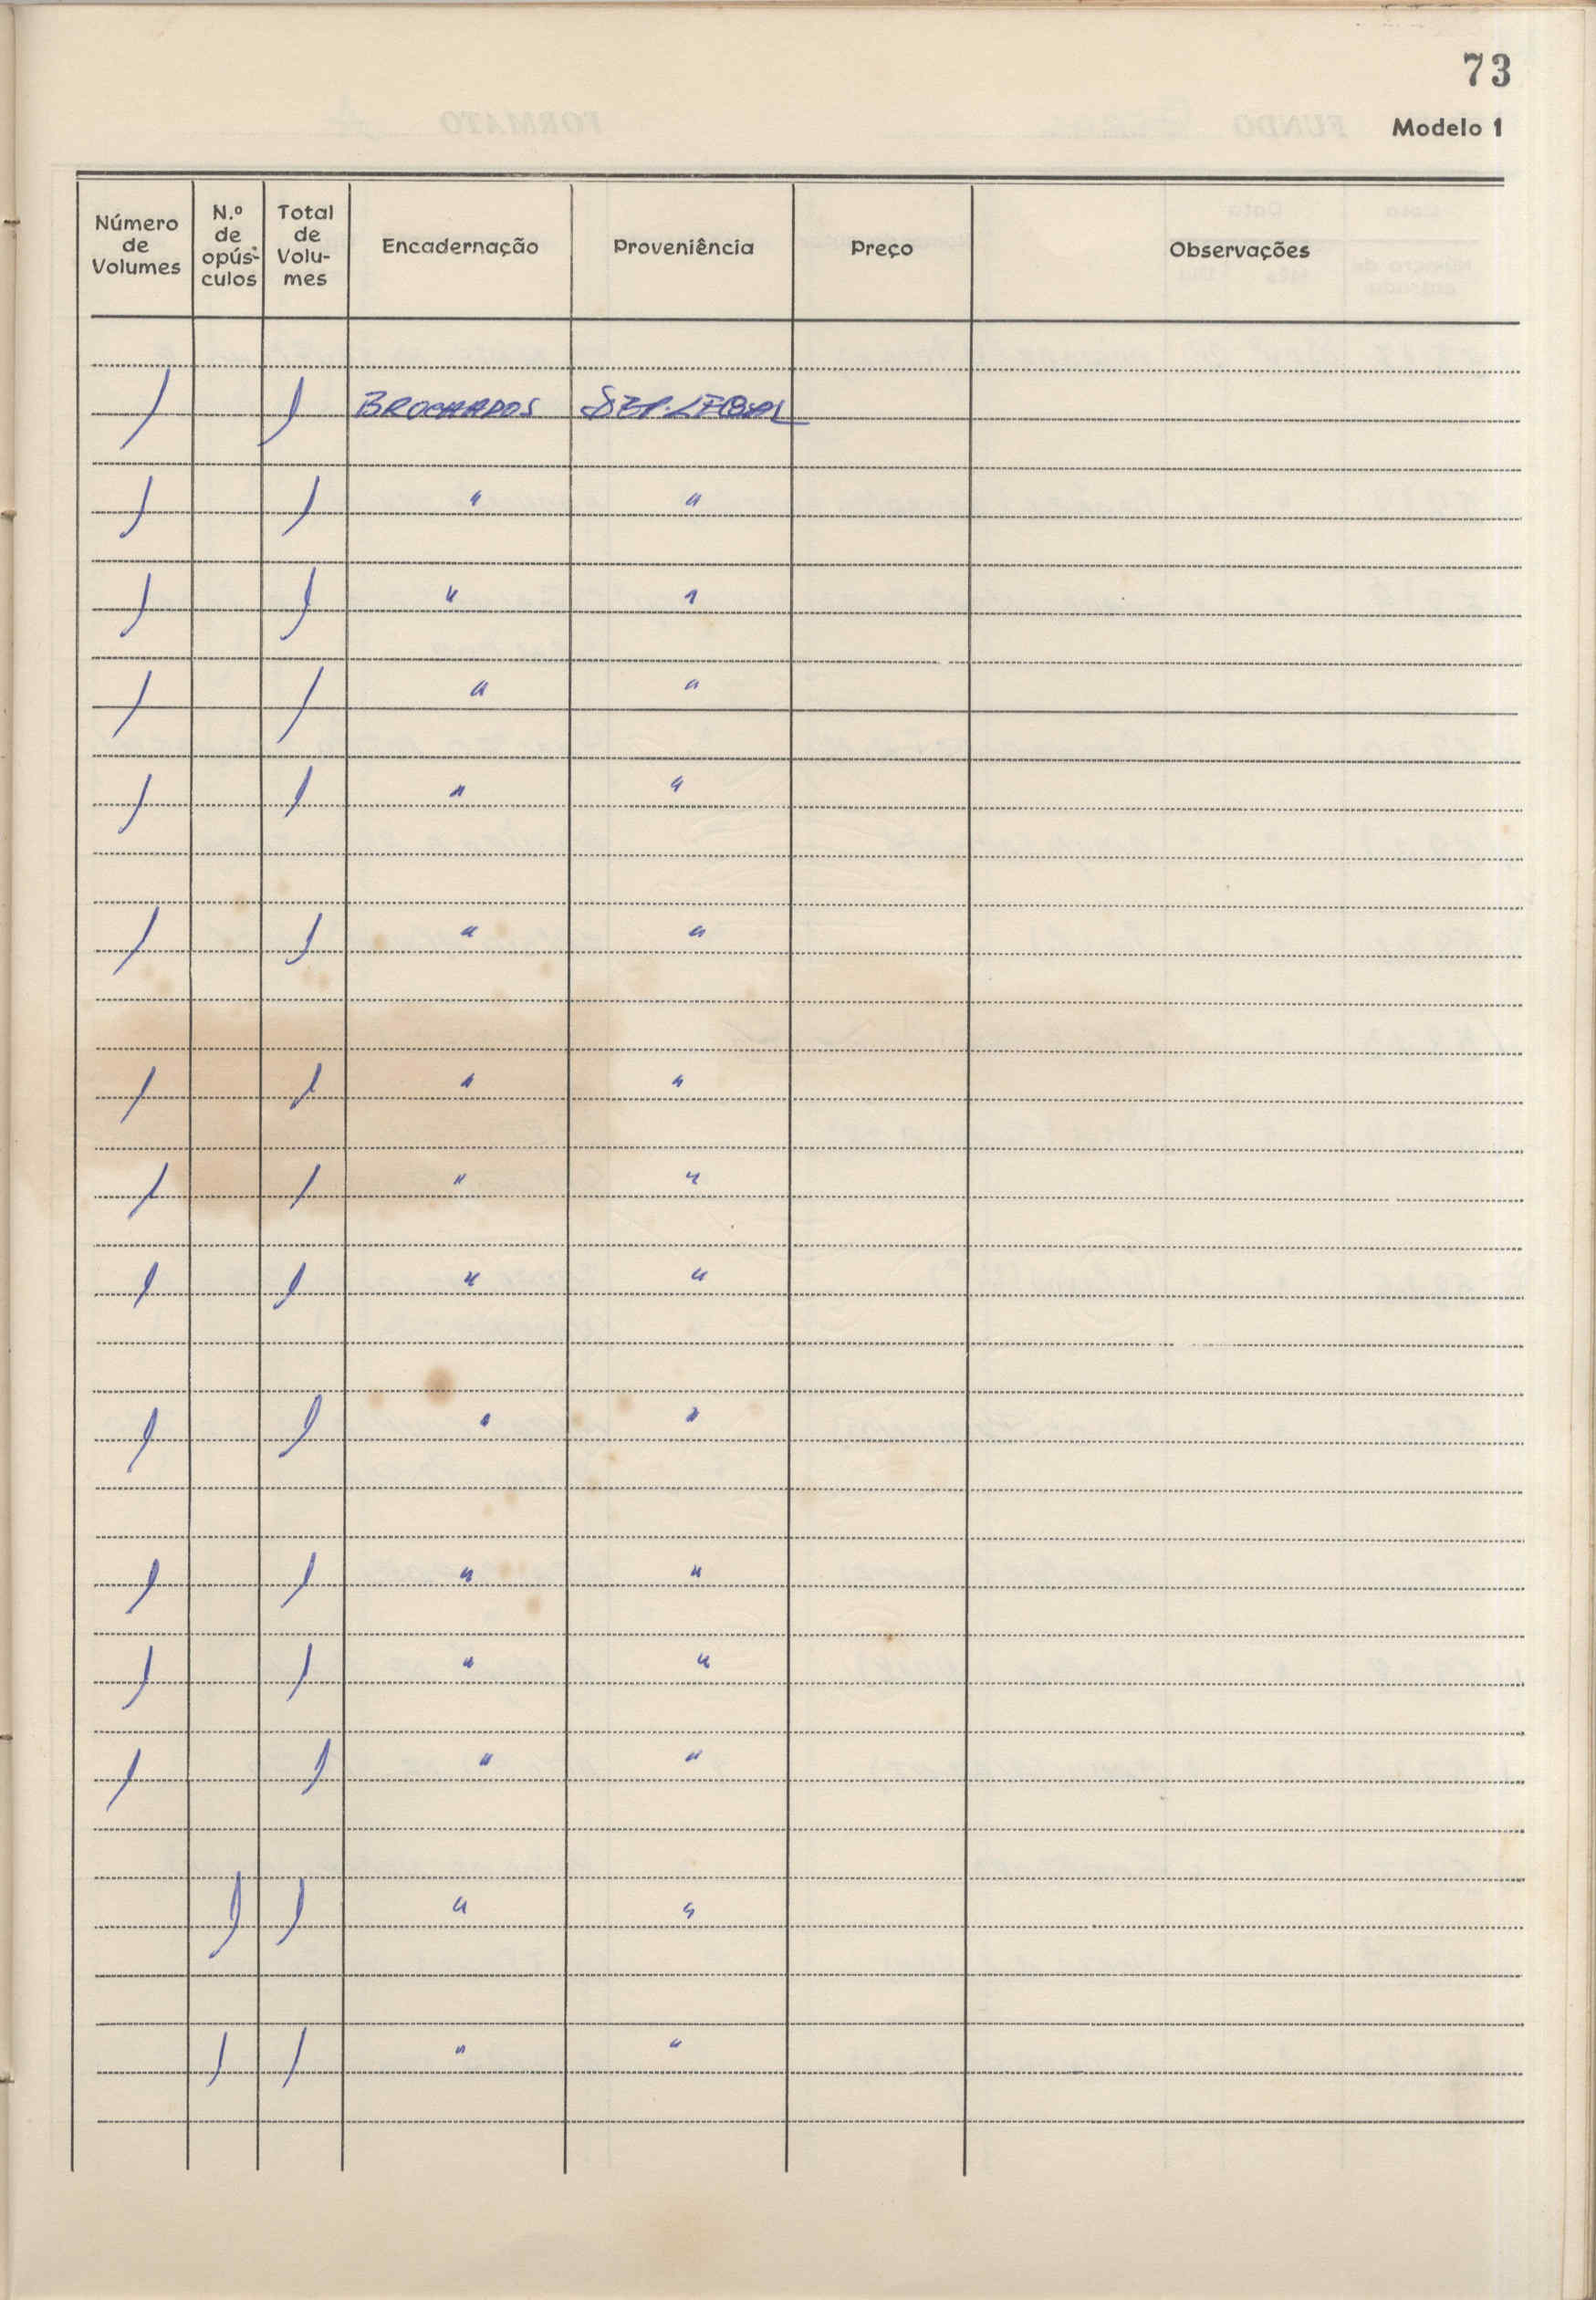 73
Modelo 1
Número de Volumes | N.º de opúsculos | Total de Volumes | Encadernação | Proveniência | Preço | Observações
1 | | 1 | BROCHADOS | DEP. LEGAL
1 | | 1 | " | "
1 | | 1 | " | "
1 | | 1 | " | "
1 | | 1 | " | "
1 | | 1 | " | "
1 | | 1 | " | "
1 | | 1 | " | "
1 | | 1 | " | "
1 | | 1 | " | "
1 | | 1 | " | "
1 | | 1 | " | "
1 | | 1 | " | "
| 1 | 1 | " | "
| 1 | 1 | " | "